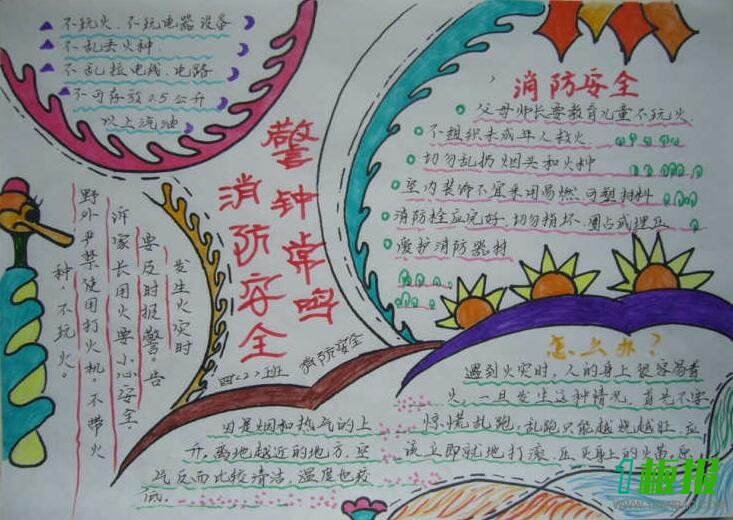 不玩火、不玩电器设备
不乱丢火种
不乱拉电线、电路
不可存放0.5公升
以上汽油
警钟常鸣
消防安全
四(2)班
消防安全
消防安全
父母师长要教育儿童不玩火
不组织未成年人救火
切勿乱扔烟头和火种
室内装饰不宜采用易燃、可塑材料
消防栓应完好、切勿损坏、圈占或埋压
爱护消防器材
发生火灾时
要及时报警。告
诉家长用火要小心安全，
野外严禁使用打火机。不带火
种，不玩火。
因是烟和热气的上
升，离地越近的地方，空
气反而比较清洁，温度也较
低。
怎么办？
遇到火灾时，人的身上很容易着
火，一旦发生这种情况，首先不要
惊慌乱跑，乱跑只能越烧越旺，应
该立即就地打滚，压灭身上的火苗，
1板报
WWW.1BANBAO.COM